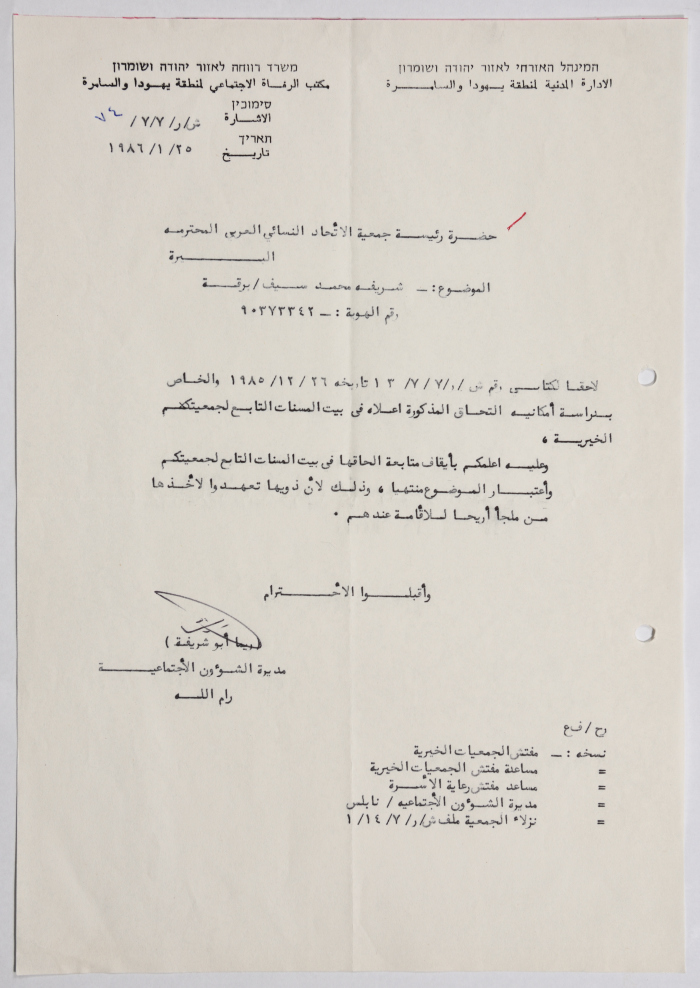 המינהל האזרחי לאזור יהודה ושומרון
الادارة المدنية لمنطقة يهودا والسامـــــرة
משרד רווחה לאזור יהודה ושומרון
مكتب الرفاة الاجتماعي لمنطقة يهـودا والسامرة
סימוכין
الاشـارة ش/ر/٧/٧/ ٧٤
תאריך
تاريـخ ٢٥/ ١/ ١٩٨٦
حضـرة رئيســة جمعية الاتٔحاد النسائي العربي المحترمـه
البــــــيرة
الموضـوع :ــ شـريفـه محمـد سـيف/ برقـــة
رقم الهوية :ــ ٩٠٣٧٣٣٤٢
لاحقـا لكتابـي رقم ش /ر/٧/ ٧/ ١٣ تاريخه ٢٦ /١٢/ ١٩٨٥ والخـاص
بـدراسـة أمكانيـه التحـاق المذكورة اعـلاه في بيت المسنـات التابـع لجمعيتكـم
الخيريــة ،
وعليـه اعلمكـم بأيقـاف متابعـة الحاقهـا في بيت المسنات التابـع لجمعيتكـم
وأعتبـــار الموضـوع منتهيـا ، وذلـك لانٔ ذويهـا تعهـدوا لاخٔـذهـا
مـن ملجأ أريحـا لـلاقٔامـة عنـدهـم ٠
وأقبلــــوا الاحٔـــــترام
أبـو شـريفـة )
مديـرة الشـؤون الاجٔتماعيـــــة
رام اللـــه
رج /فع
نسخه :ــ مفتـش الجمعيـات الخيرية
= مساعـدة مفتـش الجمعيـات الخيرية
= مساعـد مفتـش رعاية الاسٔـرة
= مديرة الشـؤون الاجٔتماعيـه / نابلس
= نزلاء الجمعية ملف ش/ر/ ٧/ ١٤/ ١